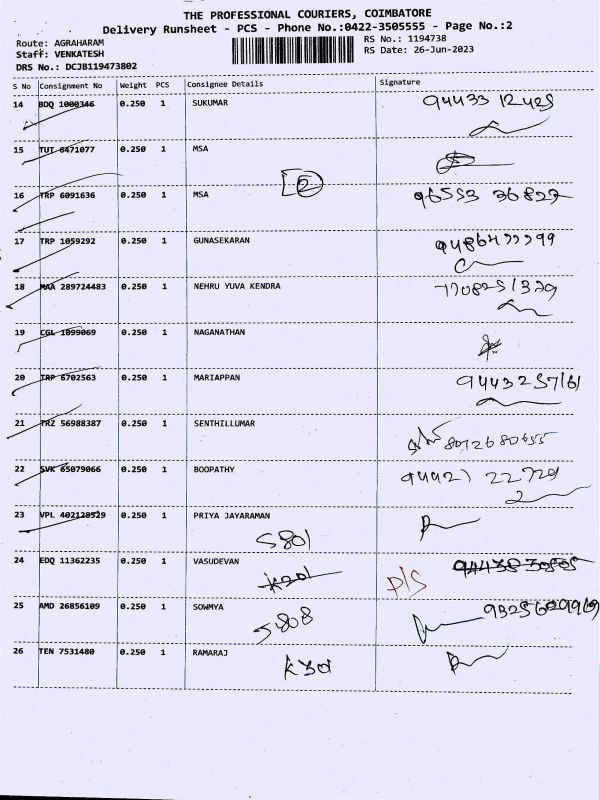 THE PROFESSIONAL COURIERS, COIMBATORE
Delivery Runsheet - PCS - Phone No.:0422-3505555 - Page No.:2
Route: AGRAHARAM
Staff: VENKATESH
DRS No.: DCJB119473802
RS No.: 1194738
RS Date: 26-Jun-2023
S No Consignment No Weight PCS Consignee Details Signature
14 BDQ 1000346 0.250 1 SUKUMAR 94433 12425
15 TUT 6471077 0.250 1 MSA
2
16 TRP 6091636 0.250 1 MSA 96553 36827
17 TRP 1059292 0.250 1 GUNASEKARAN
18 MAA 289724483 0.250 1 NEHRU YUVA KENDRA 7708251329
19 CGL 1099069 0.250 1 NAGANATHAN
20 TRP 6702563 0.250 1 MARIAPPAN 9443257161
21 TRZ 56988387 0.250 1 SENTHILLUMAR 8072680655
22 SVK 65079066 0.250 1 BOOPATHY 94427 22729
23 VPL 402128529 0.250 1 PRIYA JAYARAMAN
5801
24 EDQ 11362235 0.250 1 VASUDEVAN P/S
25 AMD 26856109 0.250 1 SOWMYA
5808
26 TEN 7531480 0.250 1 RAMARAJ
K301